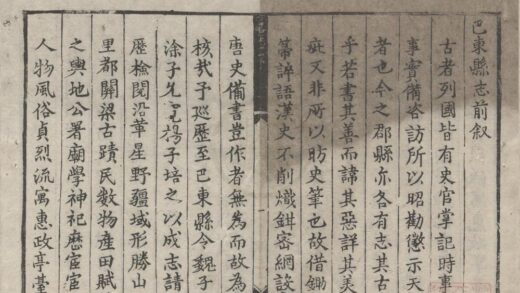 巴東縣志前叙
古者列國皆有史官掌記時事
事實備咨訪所以昭勸懲示天
者也今之郡縣亦各有志其古
乎若書其善而諱其惡詳其美
疵又非所以昉史筆也故借鋤
箒誶語漢史不削熾鉗密網設
唐史備書豈作者無為而故為
核哉予巡歷至巴東縣令魏子
涂子先揚子培之以成志請
歷檢閱沿革星野疆域形勝山
里都關梁古蹟民數物產田賦
之輿地公署廟學神祀歷宦宦
人物風俗貞烈流寓惠政亭臺